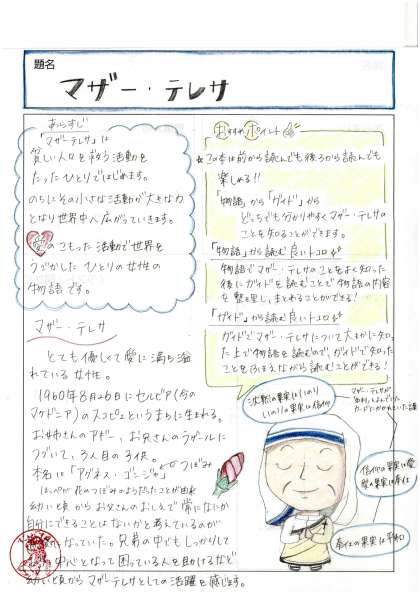 題名
マザー・テレサ
あらすじ
「マザーテレサ」は
貧しい人々を救う活動を
たったひとりではじめます。
のちにその小さな活動が大きな力
となり世界中へ広がっていきます。
愛のこもった活動で世界を
うごかしたひとりの女性の
物語です。
おすすめポイント
★この本は前から読んでも後ろから読んでも
楽しめる!!
「物語」から「ガイド」から
どっちでも分かりやすくマザー・テレサの
ことを知ることができます。
「物語」から読む良いトコロ
物語でマザー・テレサのことをよく知った
後にガイドを読むことで物語の内容
を整理し、まとめることができる!
「ガイド」から読む良いトコロ
ガイドでマザー・テレサについて大まかに知っ
た上で物語を読むので、ガイドで知った
ことをふまえながら読むことができる!
マザー・テレサ
とても優しくて愛に満ち溢
れている女性。
1960年8月26日にセルビア(今の
マケドニア)のスコピエというまちに生れる。
お姉さんのアガー、お兄さんのラザールに
つづいて、3人目の子供。
本名は「アグネス・ゴンジャ」
つぼみ
ほっぺが花のつぼみのようだたことが由来
幼い頃からお父さんのおしえで常になにか
自分にできることはないかと考えているのが
なっていた。兄弟の中でもしっかりして
中心となって困っている人を助けるなど
幼い頃からマザーテレサとしての活躍を感じます。
マザー・テレサが
カードにかかれていた詩
沈黙の果実はいのり
いのりの果実は信仰
信仰の果実は愛
愛の果実は奉仕
奉仕の果実は平和